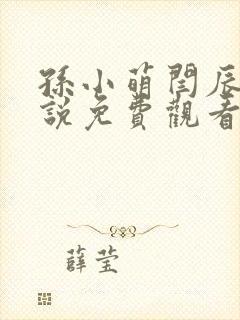 孫小萌閆辰
說免費觀看
薛莹